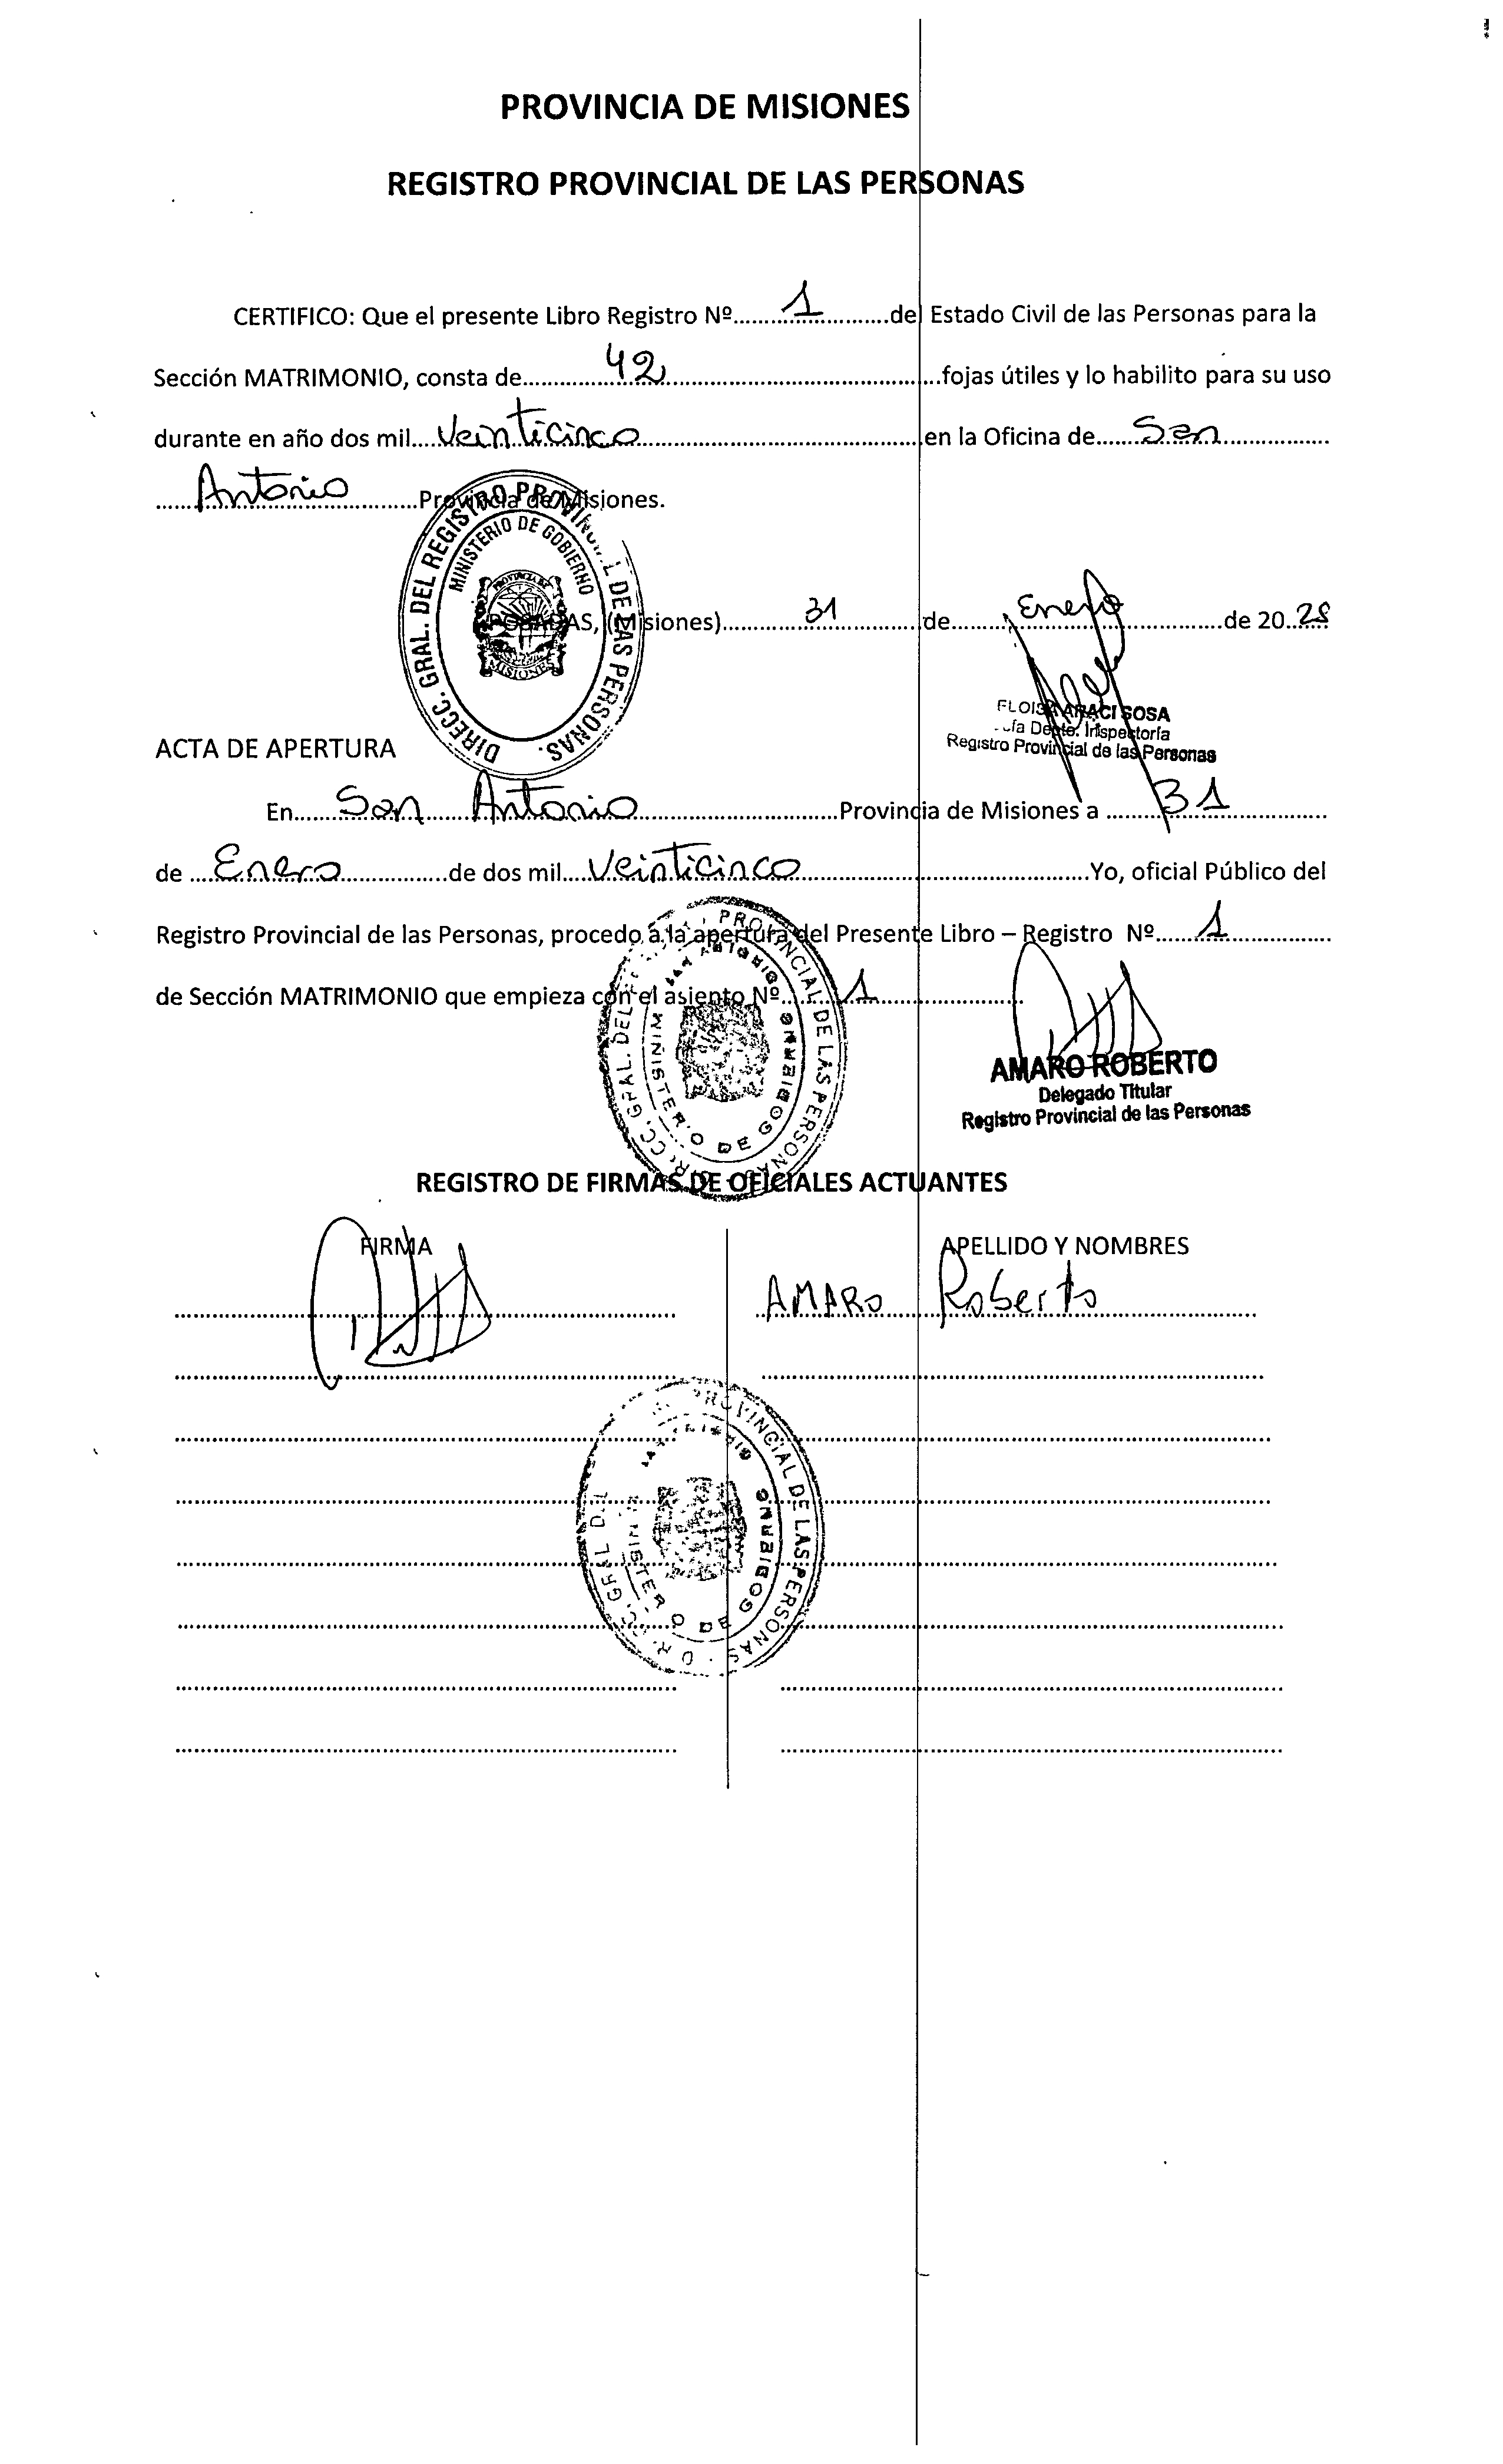 PROVINCIA DE MISIONES
REGISTRO PROVINCIAL DE LAS PERSONAS
CERTIFICO: Que el presente Libro Registro Nº.....1.....del Estado Civil de las Personas para la
Sección MATRIMONIO, consta de.....42.....fojas útiles y lo habilito para su uso
durante en año dos mil....Veinticinco.....en la Oficina de.....San.....
.....Antonio.....Provincia de Misiones.
DIRECC. GRAL. DEL REGISTRO PROVINCIAL DE LAS PERSONAS.
MINISTERIO DE GOBIERNO
PROVINCIA DE
MISIONES
POSADAS, (Misiones).....31.....de.....Enero.....de 20..25
ARACI SOSA
Depto. Inspectoría
Registro Provincial de las Personas
ACTA DE APERTURA
En.....San Antonio.....Provincia de Misiones a .....31.....
de .....Enero.....de dos mil....Veinticinco.....Yo, oficial Público del
Registro Provincial de las Personas, procedo a la apertura del Presente Libro – Registro Nº.....1.....
de Sección MATRIMONIO que empieza con el asiento Nº.....1.....
DIRECC. GRAL. DEL PROVINCIAL DE LAS PERSONAS
MINISTERIO DE GOBIERNO
SAN ANTONIO
AMARO ROBERTO
Delegado Titular
Registro Provincial de las Personas
REGISTRO DE FIRMAS DE OFICIALES ACTUANTES
FIRMA APELLIDO Y NOMBRES
AMARO Roberto
GRAL DEL PROVINCIAL DE LAS PERSONAS
MINISTERIO DE GOBIERNO